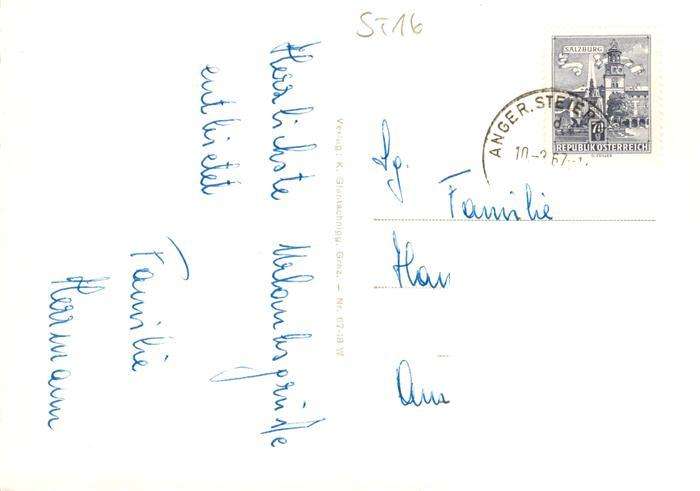 St 16
Herzlichste Urlaubsgrüsse
entbietet
Familie
Herrmann
Verlag: K. Glantschnigg, Graz. — Nr. 67-18 W
SALZBURG
REPUBLIK ÖSTERREICH
ANGER. STEIERM
Sg.
Familie
Han